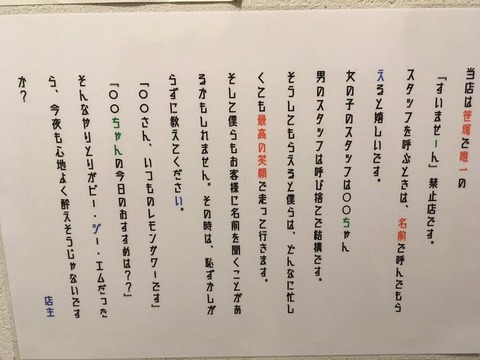 当店は笹塚で唯一の
「すいませーん」禁止店です。
スタッフを呼ぶときは、名前で呼んでもら
えると嬉しいです。
女の子のスタッフは〇〇ちゃん
男のスタッフは呼び捨てで結構です。
そうしてもらえると僕らは、どんなに忙し
くても最高の笑顔で走って行きます。
そして僕らもお客様に名前を聞くことがあ
るかもしれません。その時は、恥ずかしが
らずに教えてください。
「〇〇さん、いつものレモンサワーです」
「〇〇ちゃんの今日のおすすめは??」
そんなやりとりがビー・ジー・エムだった
ら、今夜も心地よく酔えそうじゃないです
か?
店主